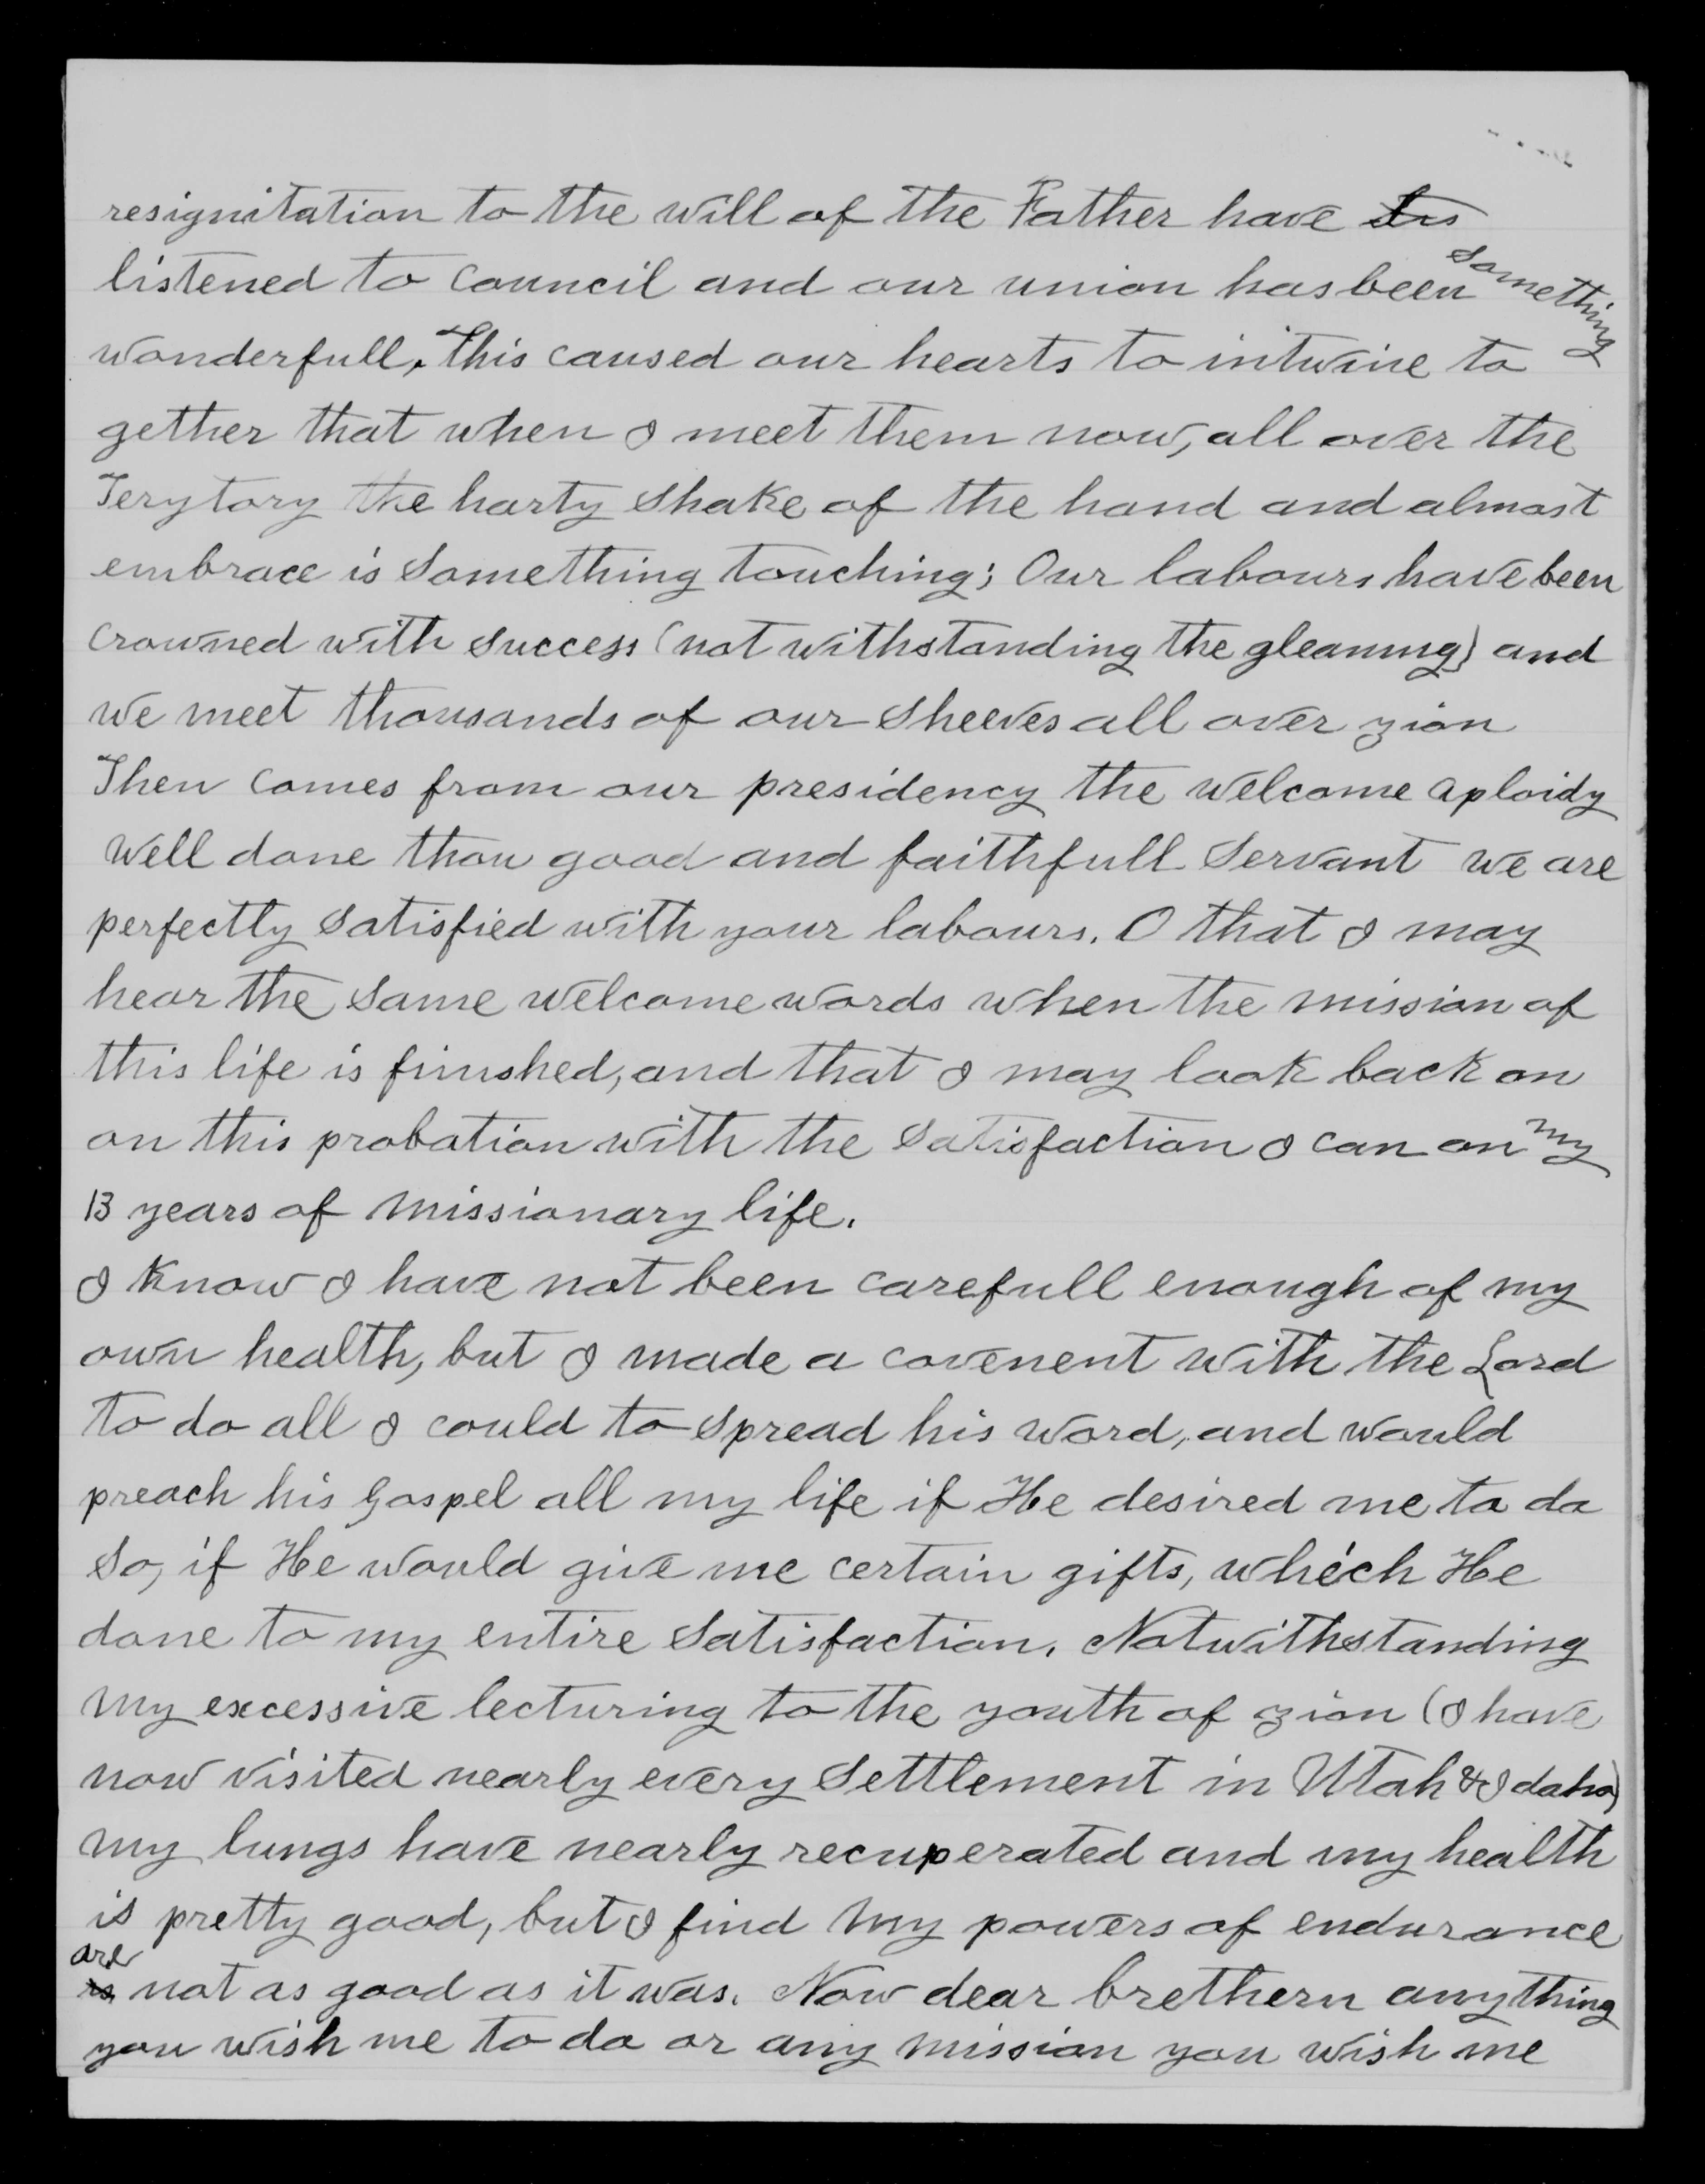 resignitation to the will of the Father have
listened to Council and our union has been something
wonderfull, This caused our hearts to intwine to
gether that when I meet them now, all over the
Terytory the harty shake of the hand and almost
embrace is something touching; Our labours have been
crowned with success (not withstanding the gleaning) and
we meet thousands of our sheeves all over zion
Then comes from our presidency the welcome aploidy
well done thou good and faithfull Servant we are
perfectly satisfied with your labours. O that I may
hear the same welcome words when the mission of
this life is finished, and that I may look back on
on this probation with the satisfaction I can on my
13 years of missionary life.
I know I have not been carefull enough of my
own health, but I made a covenent with the Lord
to do all I could to spread his word, and would
preach his Gospel all my life if He desired me to do
so, if He would give me certain gifts, which He
done to my entire satisfaction. Notwithstanding
my excessive lecturing to the youth of zion (I have
now visited nearly every settlement in Utah & Idaho)
my lungs have nearly recuperated and my health
is pretty good, but I find my powers of endurance
are not as good as it was. Now dear brethern anything
you wish me to do or any mission you wish me